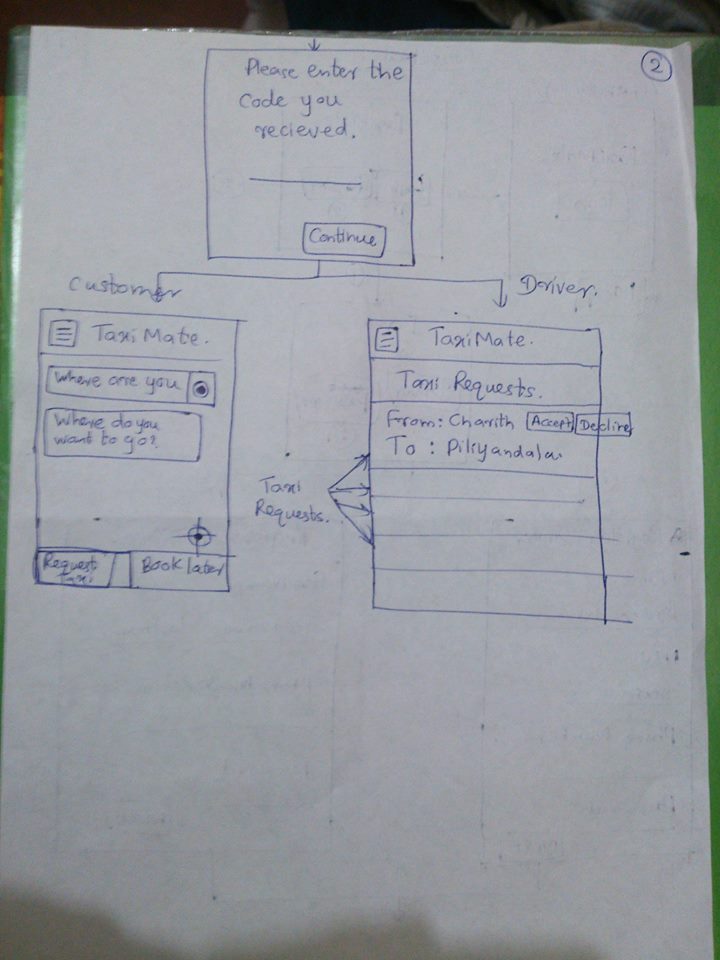 2
Please enter the
Code you
recieved.
Continue
Customer
Driver.
Taxi Mate.
Where are you
Where do you
want to go?
Request
Taxi
Book later
Taxi Mate.
Taxi Requests.
From: Charith
Accept
Decline
To : Piliyandala
Taxi
Requests.